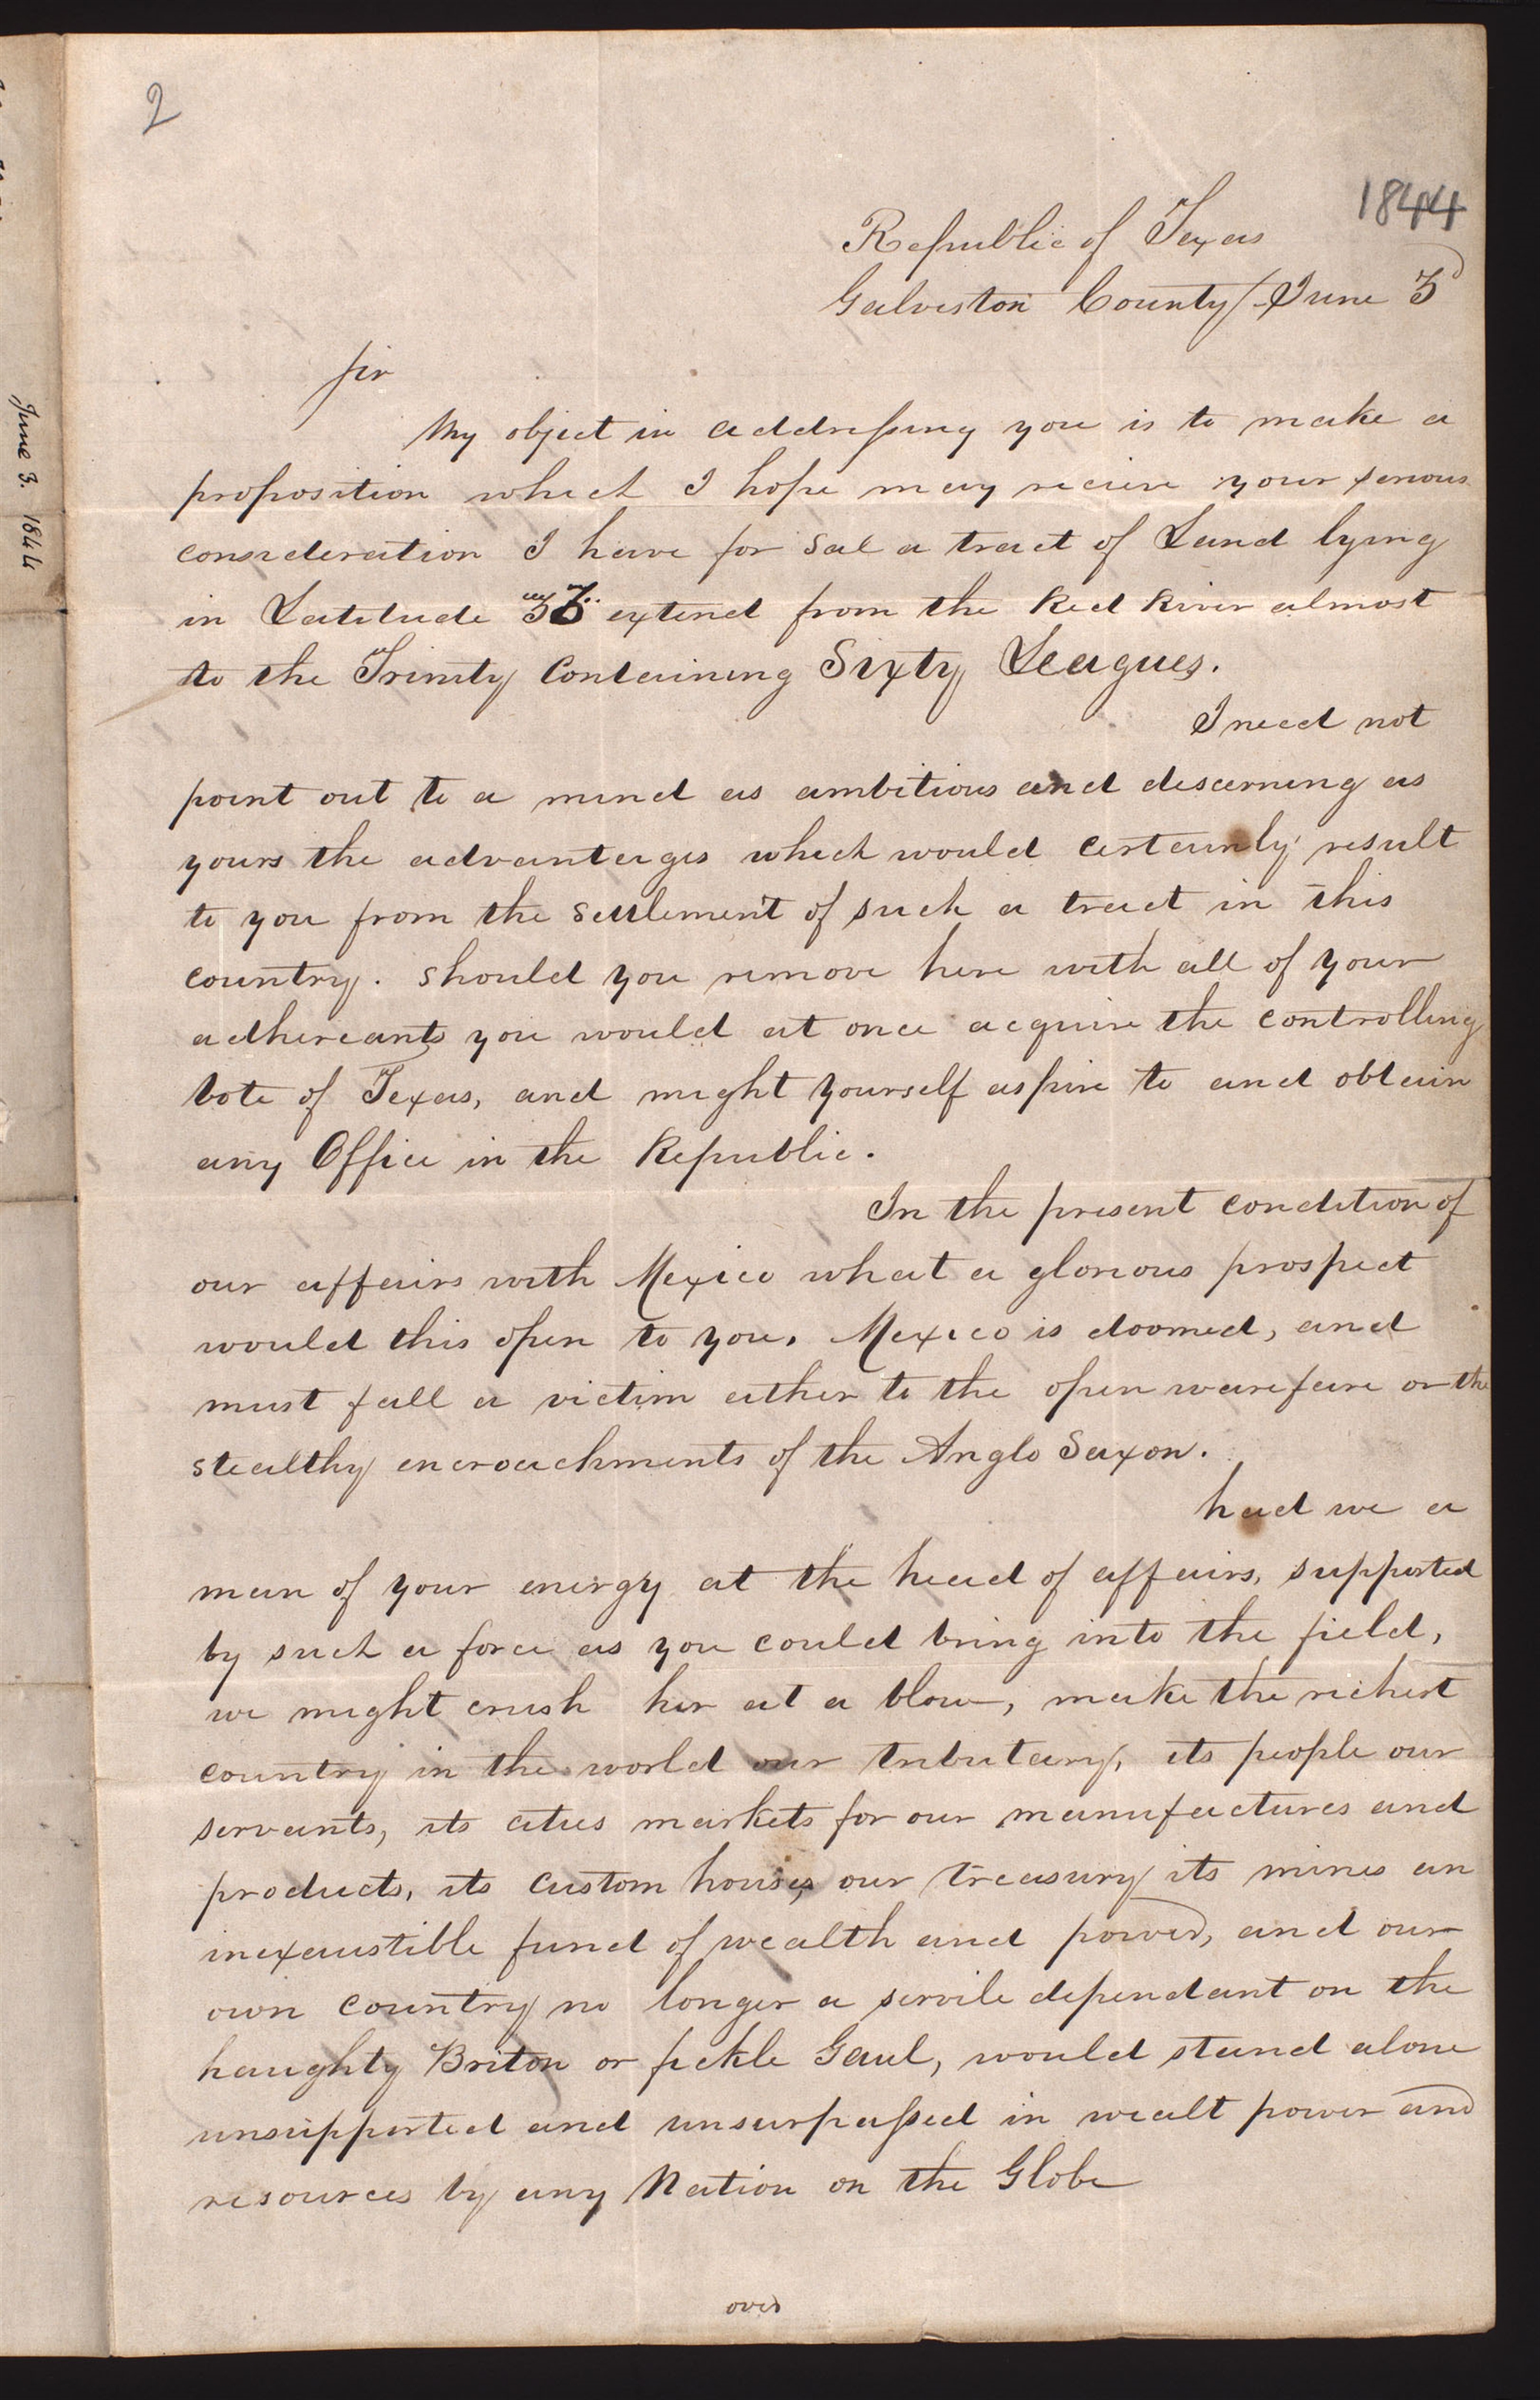 2
1844
Republic of Texas
Galveston County/- June 3d
Sir
My object in addressing you is to make a
proposition which I hope may recieve your serious
consideration I have for sal a tract of Land lying
in Latitude 33 extend from the Red River almost
to the Trinity Containing Sixty Leagues.
I need not
point out to a mind as ambitious and discerning as
yours the advantages which would certainly result
to you from the settlement of such a tract in this
country. Should you remove here with all of your
adhereants you would at once acquire the controlling
vote of Texas, and might yourself aspire to and obtain
any Office in the Republic.
In the present condition of
our affairs with Mexico what a glorious prospect
would this open to you. Mexico is doomed, and
must fall a victim either to the open warefare or the
stealthy encroachments of the Anglo Saxon.
had we a
man of your energy at the head of affairs, supported
by such a force as you could bring into the field,
we might crush her at a blow, make the richest
country in the world our tributary, its people our
servants, its cities markets for our manufactures and
products, its custom houses our treasury its mines an
inexaustible fund of wealth and power, and our
own country no longer a servile dependant on the
haughty Briton or fickle Gaul, would stand alone
unsupported and unsurpassed in wealt power and
resources by any Nation on the Globe
over
June 3. 1844